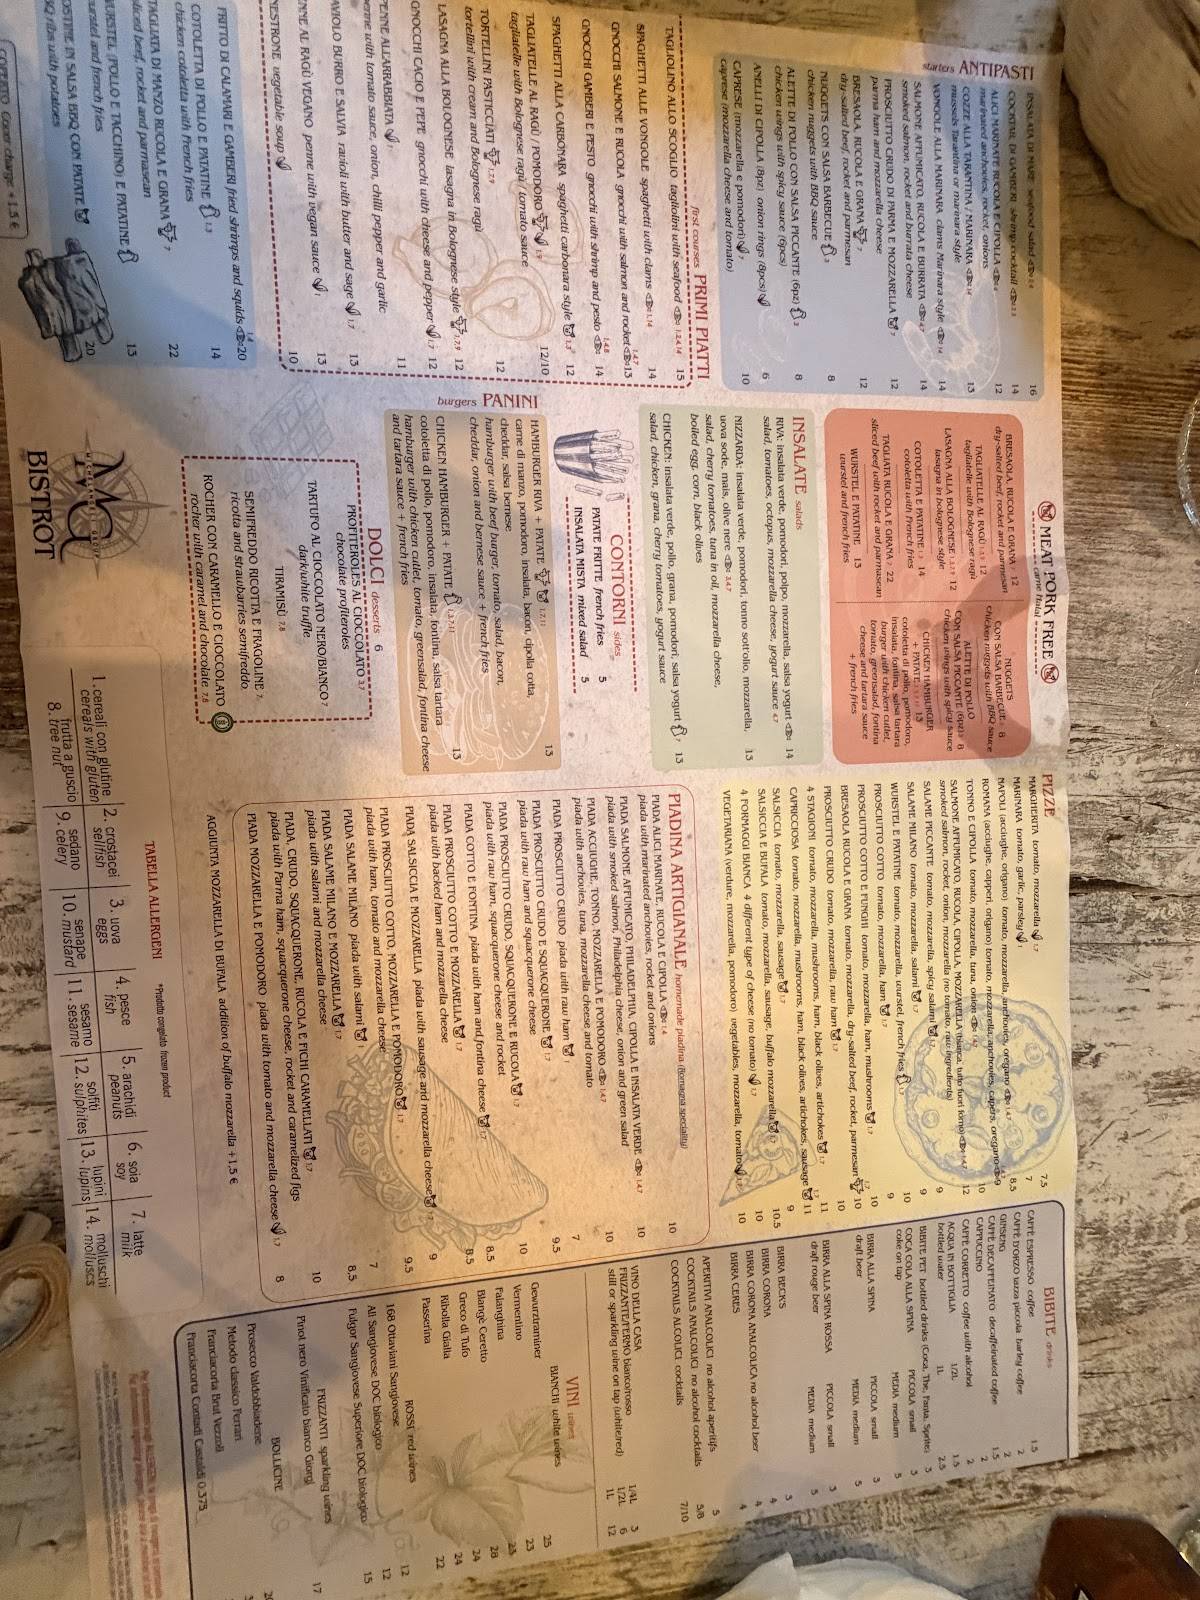 ANTIPASTI
starters
INSALATA DI MARE seafood salad 16
COCKTAIL DI GAMBERI shrimp cocktail 14
ALICI MARINATE RUCOLA E CIPOLLA 12
marinated anchovies, rocket, onions
COZZE ALLA TARANTINA / MARINARA 13
mussels Tarantina or marinara style
VONGOLE ALLA MARINARA clams Marinara style 14
SALMONE AFFUMICATO, RUCOLA E BURRATA 14
smoked salmon, rocket and burrata cheese
PROSCIUTTO CRUDO DI PARMA E MOZZARELLA 12
parma ham and mozzarella cheese
BRESAOLA, RUCOLA E GRANA 12
dry-salted beef, rocket and parmesan
NUGGETS CON SALSA BARBECUE 8
chicken nuggets with BBQ sauce
ALETTE DI POLLO CON SALSA PICCANTE (6pz) 8
chicken wings with spicy sauce (6pcs)
ANELLI DI CIPOLLA (8pz) onion rings (8pcs) 6
CAPRESE (mozzarella e pomodori) 10
caprese (mozzarella cheese and tomato)
first courses PRIMI PIATTI
TAGLIOLINO ALLO SCOGLIO tagliolini with seafood 15
SPAGHETTI ALLE VONGOLE spaghetti with clams 14
GNOCCHI SALMONE E RUCOLA gnocchi with salmon and rocket 13
GNOCCHI GAMBERI E PESTO gnocchi with shrimp and pesto 14
SPAGHETTI ALLA CARBONARA spaghetti carbonara style 12
TAGLIATELLE AL RAGÙ / POMODORO 12/10
tagliatelle with Bolognese ragù / tomato sauce
TORTELLINI PASTICCIATI 12
tortellini with cream and Bolognese ragù
LASAGNA ALLA BOLOGNESE lasagna in Bolognese style 12
GNOCCHI CACIO E PEPE gnocchi with cheese and pepper 12
PENNE ALL'ARRABBIATA 11
penne with tomato sauce, onion, chilli pepper and garlic
RAVIOLO BURRO E SALVIA ravioli with butter and sage 13
PENNE AL RAGÙ VEGANO penne with vegan sauce 13
MINESTRONE vegetable soup 10
FRITTO DI CALAMARI E GAMBERI fried shrimps and squids 20
COTOLETTA DI POLLO E PATATINE 14
chicken cotoletta with french fries
TAGLIATA DI MANZO RUCOLA E GRANA 22
sliced beef, rocket and parmesan
WURSTEL (POLLO E TACCHINO) E PATATINE 13
wurstel and french fries
COSTINE IN SALSA BBQ CON PATATE 20
BBQ ribs with potatoes
COPERTO Cover charge + 1,5 €
MEAT PORK FREE
carne halal
BRESAOLA, RUCOLA E GRANA 12
dry-salted beef, rocket and parmesan
TAGLIATELLE AL RAGÙ 12
tagliatelle with Bolognese ragù
LASAGNA ALLA BOLOGNESE 12
lasagna in bolognese style
COTOLETTA E PATATINE 14
cotoletta with french fries
TAGLIATA RUCOLA E GRANA 22
sliced beef with rocket and parmascan
WURSTEL E PATATINE 13
wurstel and french fries
NUGGETS
CON SALSA BARBECUE 8
chicken nuggets with BBQ sauce
ALETTE DI POLLO
CON SALSA PICCANTE (6pz) 8
chicken wings with spicy sauce
CHICKEN HAMBURGER
+ PATATE 13
cotoletta di pollo, pomodoro,
insalata, fontina, salsa tartara
burger with chicken cutlet,
tomato, greensalad, fontina
cheese and tartara sauce
+ french fries
INSALATE salads
RIVA: insalata verde, pomodori, polpo, mozzarella, salsa yogurt 14
salad, tomatoes, octopus, mozzarella cheese, yogurt sauce
NIZZARDA: insalata verde, pomodori, tonno sott'olio, mozzarella, 13
uova sode, mais, olive nere
salad, cherry tomatoes, tuna in oil, mozzarella cheese,
boiled egg, corn, black olives
CHICKEN: insalata verde, pollo, grana, pomodori, salsa yogurt 13
salad, chicken, grana, cherry tomatoes, yogurt sauce
CONTORNI sides
PATATE FRITTE french fries 5
INSALATA MISTA mixed salad 5
burgers PANINI
HAMBURGER RIVA + PATATE 13
carne di manzo, pomodoro, insalata, bacon, cipolla cotta,
cheddar, salsa bernese
hamburger with beef burger, tomato, salad, bacon,
cheddar, onion and bernese sauce + french fries
CHICKEN HAMBURGER + PATATE 13
cotoletta di pollo, pomodoro, insalata, fontina, salsa tartara
hamburger with chicken cutlet, tomato, greensalad, fontina cheese
and tartara sauce + french fries
DOLCI desserts 6
PROFITEROLES AL CIOCCOLATO
chocolate profiteroles
TARTUFO AL CIOCCOLATO NERO/BIANCO
dark/white truffle
TIRAMISÙ
SEMIFREDDO RICOTTA E FRAGOLINE
ricotta and straubarries semifreddo
ROCHER CON CARAMELLO E CIOCCOLATO
rocher with caramel and chocolate
BISTROT
PIZZE
MARGHERITA tomato, mozzarella 7,5
MARINARA tomato, garlic, parsley 7
NAPOLI (acciughe, origano) tomato, mozzarella, anchovies, oregano 8,5
ROMANA (acciughe, capperi, origano) tomato, mozzarella, anchovies, capers, oregano 9
TONNO E CIPOLLA tomato, mozzarella, tuna, onion 10
SALMONE AFFUMICATO, RUCOLA, CIPOLLA, MOZZARELLA (bianca, tutto fuori forno) 12
smoked salmon, rocket, onion, mozzarella (no tomato, raw ingredients)
SALAME PICCANTE tomato, mozzarella, spicy salami 9
SALAME MILANO tomato, mozzarella, salami 9
WURSTEL E PATATINE tomato, mozzarella, wurstel, french fries 10
PROSCIUTTO COTTO tomato, mozzarella, ham 9
PROSCIUTTO COTTO E FUNGHI tomato, mozzarella, ham, mushrooms 10
BRESAOLA RUCOLA E GRANA tomato, mozzarella, dry-salted beef, rocket, parmesan 10
PROSCIUTTO CRUDO tomato, mozzarella, raw ham 10
4 STAGIONI tomato, mozzarella, mushrooms, ham, black olives, artichokes 11
CAPRICCIOSA tomato, mozzarella, mushrooms, ham, black olives, artichokes, sausage 11
SALSICCIA tomato, mozzarella, sausage 9
SALSICCIA E BUFALA tomato, mozzarella, sausage, buffalo mozzarella 10,5
4 FORMAGGI BIANCA 4 different type of cheese (no tomato) 10
VEGETARIANA (verdure, mozzarella, pomodoro) vegetables, mozzarella, tomato 10
PIADINA ARTIGIANALE homemade piadina (Romagna speciality)
PIADA ALICI MARINATE, RUCOLA E CIPOLLA 10
piada with marinated anchovies, rocket and onions
PIADA SALMONE AFFUMICATO, PHILADELPHIA, CIPOLLA E INSALATA VERDE 10
piada with smoked salmon, Philadelphia cheese, onion and green salad
PIADA ACCIUGHE, TONNO, MOZZARELLA E POMODORO 10
piada with anchovies, tuna, mozzarella cheese and tomato
PIADA PROSCIUTTO CRUDO piada with raw ham 7
PIADA PROSCIUTTO CRUDO E SQUACQUERONE 9,5
piada with raw ham, squacquerone cheese
PIADA PROSCIUTTO CRUDO, SQUACQUERONE E RUCOLA 10
piada with raw ham, squacquerone cheese and rocket
PIADA COTTO E FONTINA piada with ham and fontina cheese 8,5
PIADA PROSCIUTTO COTTO E MOZZARELLA 8,5
piada with backed ham and mozzarella cheese
PIADA SALSICCIA E MOZZARELLA piada with sausage and mozzarella cheese 9
PIADA PROSCIUTTO COTTO, MOZZARELLA E POMODORO 9,5
piada with ham, tomato and mozzarella cheese
PIADA SALAME MILANO piada with salami 7
PIADA SALAME MILANO E MOZZARELLA 8,5
piada with salami and mozzarella cheese
PIADA, CRUDO, SQUACQUERONE, RUCOLA E FICHI CARAMELLATI 10
piada with Parma ham, squacquerone cheese, rocket and caramelized figs
PIADA MOZZARELLA E POMODORO piada with tomato and mozzarella cheese 8
AGGIUNTA MOZZARELLA DI BUFALA addition of buffalo mozzarella +1,5 €
TABELLA ALLERGENI
*Prodotto congelato frozen product
1. cereali con glutine
cereals with gluten
2. crostacei
sellfish
3. uova
eggs
4. pesce
fish
5. arachidi
peanuts
6. soia
soy
7. latte
milk
8. frutta a guscio
tree nut
9. sedano
celery
10. senape
mustard
11. sesamo
sesame
12. solfiti
sulphites
13. lupini
lupins
14. molluschi
molluscs
BIBITE drinks
CAFFÈ ESPRESSO coffee 1,5
CAFFÈ D'ORZO tazza piccola barley coffee 2
GINSENG 2
CAFFÈ DECAFFEINATO decaffeinated coffee 1,5
CAPPUCCINO 2
CAFFÈ CORRETTO coffee with alcohol 2
ACQUA IN BOTTIGLIA 1/2L 1,5
bottled water 1L 2,5
BIBITE PET bottled drinks (Coca, The, Fanta, Sprite) 3
COCA COLA ALLA SPINA PICCOLA small 3
coke on tap MEDIA medium 5
BIRRA ALLA SPINA PICCOLA small 3
draft beer MEDIA medium 5
BIRRA ALLA SPINA ROSSA PICCOLA small 3
draft rouge beer MEDIA medium 5
BIRRA BECK'S 3
BIRRA CORONA 4
BIRRA CORONA ANALCOLICA no alcohol beer 4
BIRRA CERES 4
APERITIVI ANALCOLICI no alcohol aperitifs 5
COCKTAILS ANALCOLICI no alcohol cocktails 5/8
COCKTAILS ALCOLICI cocktails 7/10
VINO DELLA CASA 1/4L 3
FRIZZANTE/FERMO bianco/rosso 1/2L 6
still or sparkling wine on tap (white/red) 1L 12
VINI wines
BIANCHI white wines
Gewurztraminer 25
Vermentino 23
Falanghina 23
Blangè Ceretto 28
Greco di Tufo 24
Ribolla Gialla 24
Passerina 22
ROSSI red wines
168 Ottaviani Sangiovese 12
Alì Sangiovese DOC biologico 12
Fulgor Sangiovese Superiore DOC biologico 15
FRIZZANTI sparkling wines
Pinot nero Vinificato bianco Giorgi 17
BOLLICINE
Prosecco Valdobbiadene
Metodo classico Ferrari
Franciacorta Brut Vezzoli
Franciacorta Contadi Castaldi 0,375